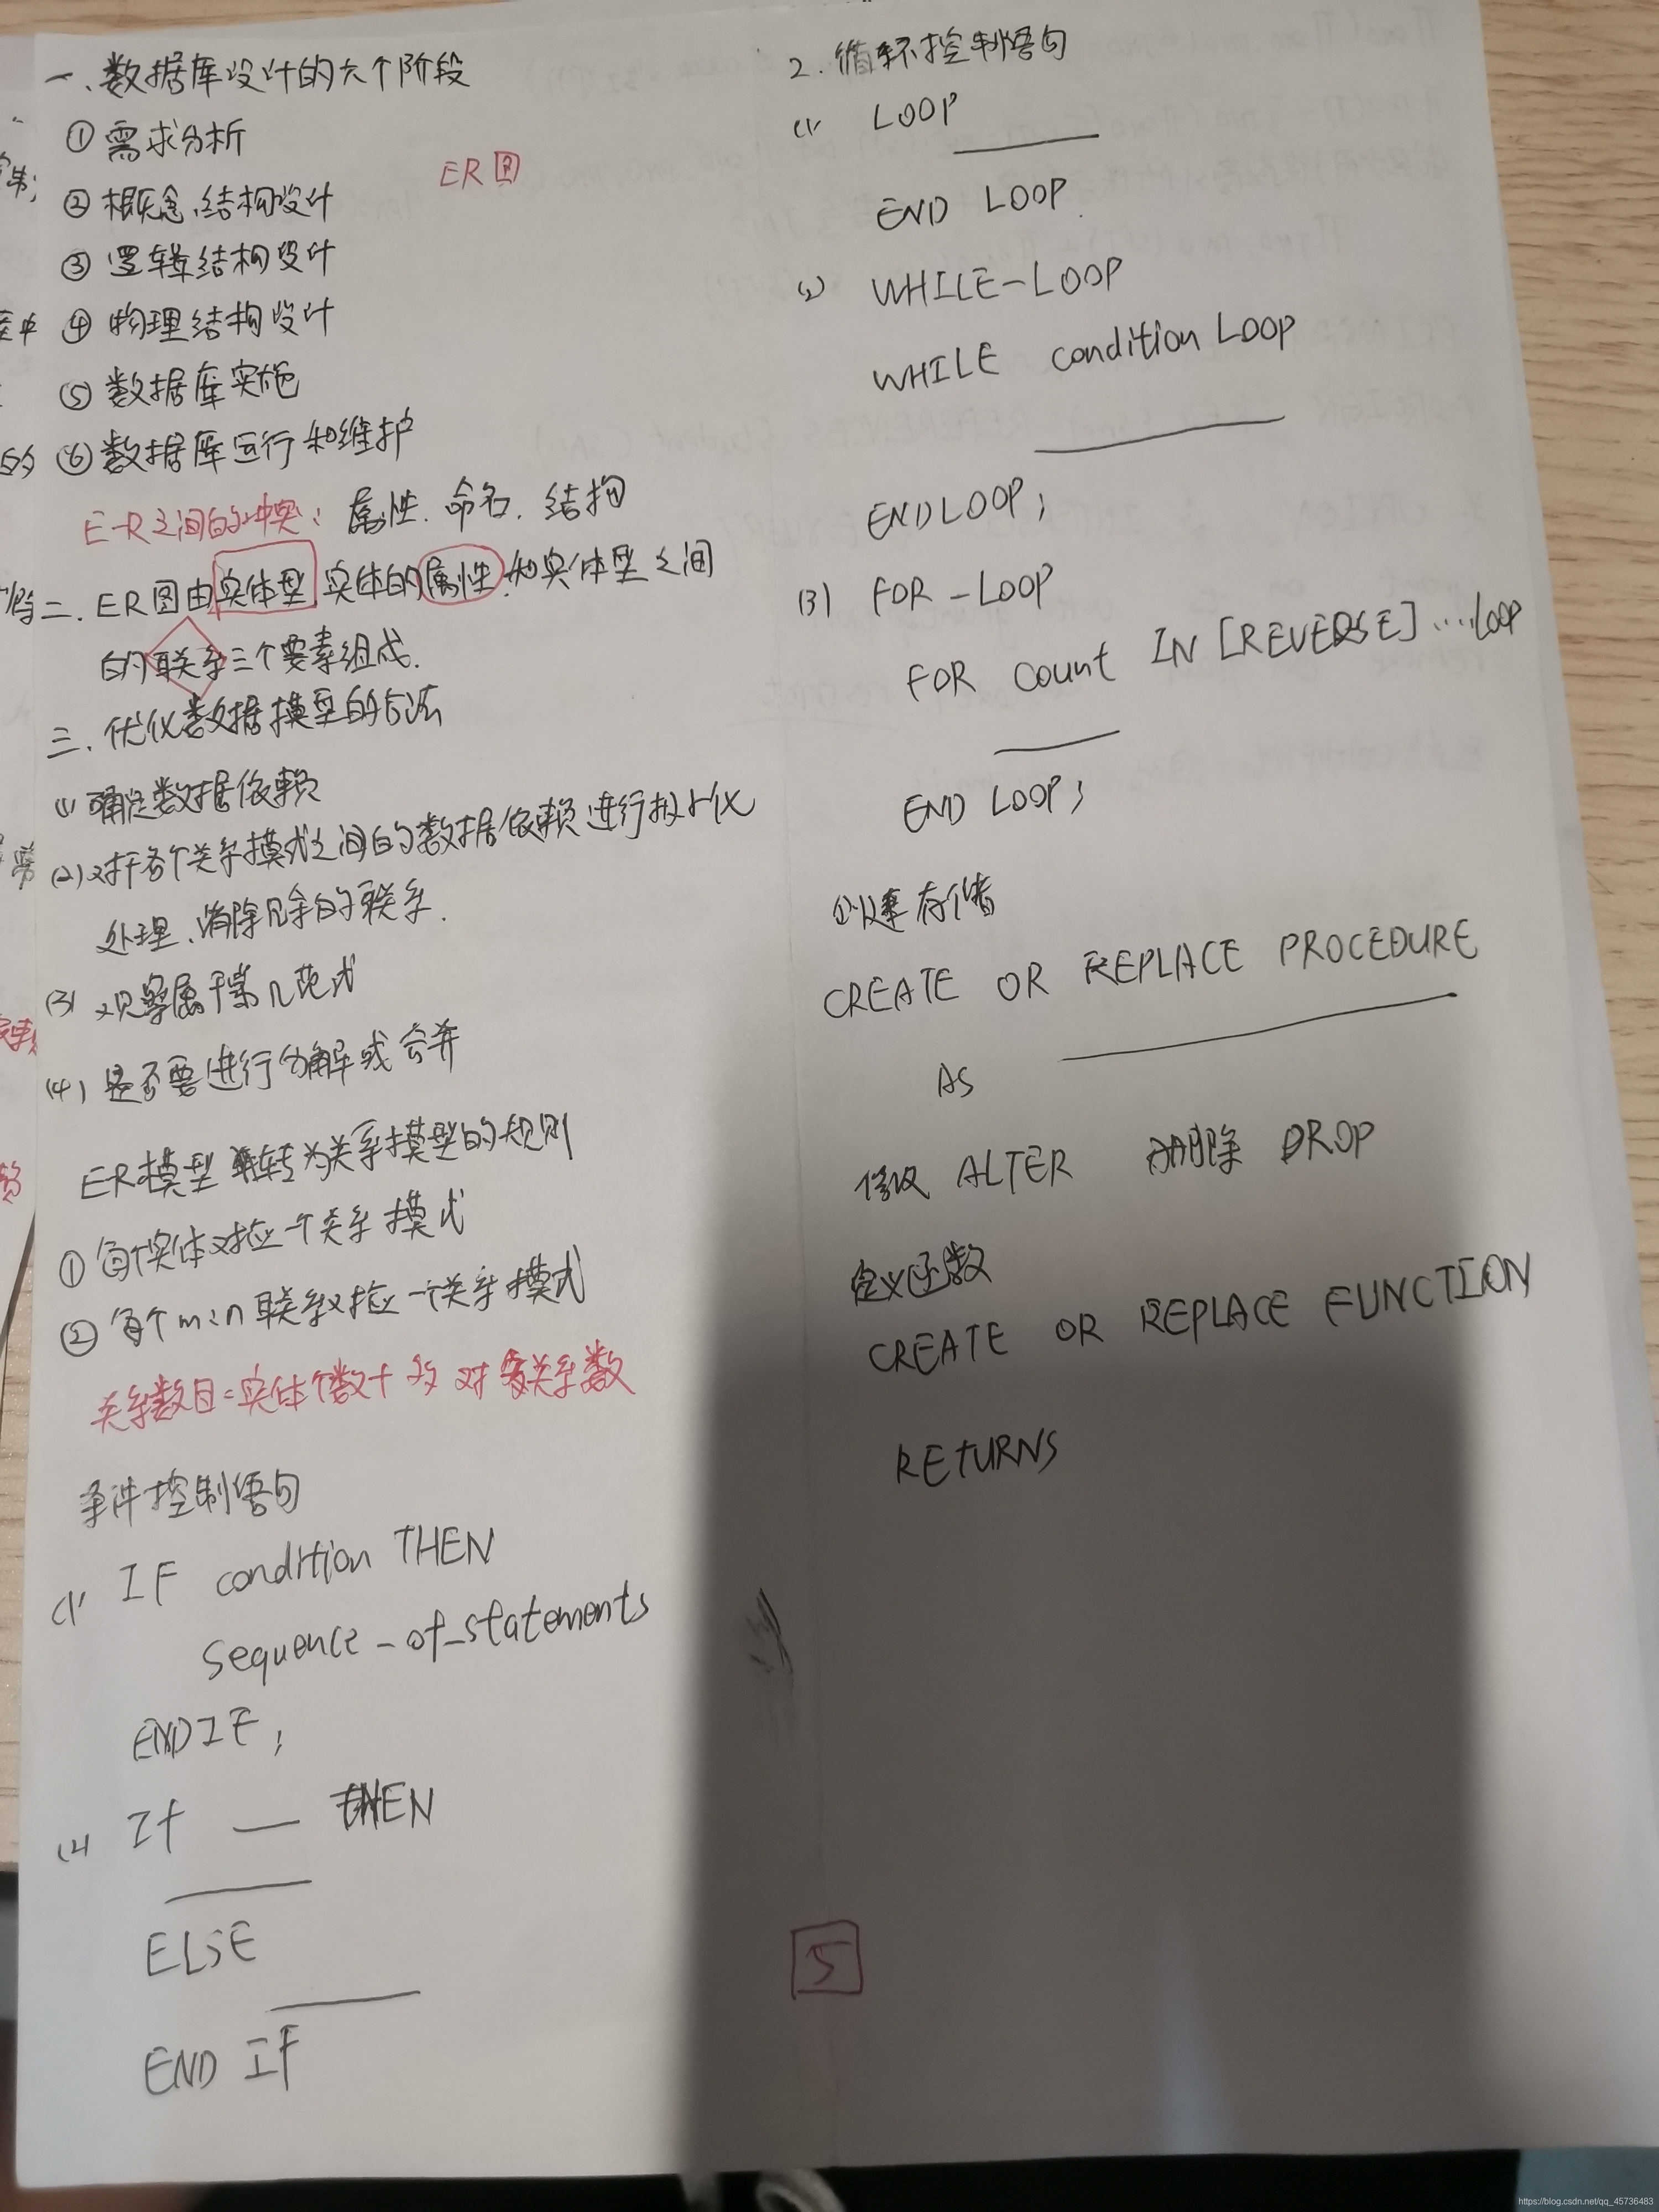 一、数据库设计的六个阶段
① 需求分析
ER图
② 概念结构设计
③ 逻辑结构设计
④ 物理结构设计
⑤ 数据库实施
⑥ 数据库运行和维护
E-R之间的冲突: 属性. 命名. 结构
二. ER图由实体型.实体的属性.和实体型之间
的联系三个要素组成.
三. 优化数据模型的方法
(1) 确定数据依赖
(2) 对于各个关系模式之间的数据依赖进行极小化
处理、消除冗余的联系.
(3) 观察属于第几范式
(4) 是否要进行分解或合并
ER模型转为关系模型的规则
① 每个实体对应一个关系模式
② 每个m:n联系对应一个关系模式
关系数目=实体个数+多对多关系数
条件控制语句
(1) IF condition THEN
sequence-of-statements
ENDIF;
(2) If — THEN
ELSE
END IF
2. 循环控制语句
(1) LOOP
END LOOP
(2) WHILE-LOOP
WHILE condition LOOP
ENDLOOP;
(3) FOR-LOOP
FOR count IN [REVERSE]....loop
END LOOP;
创建存储
CREATE OR REPLACE PROCEDURE
AS
修改 ALTER 删除 DROP
定义函数
CREATE OR REPLACE FUNCTION
RETURNS
5
https://blog.csdn.net/qq_45736483